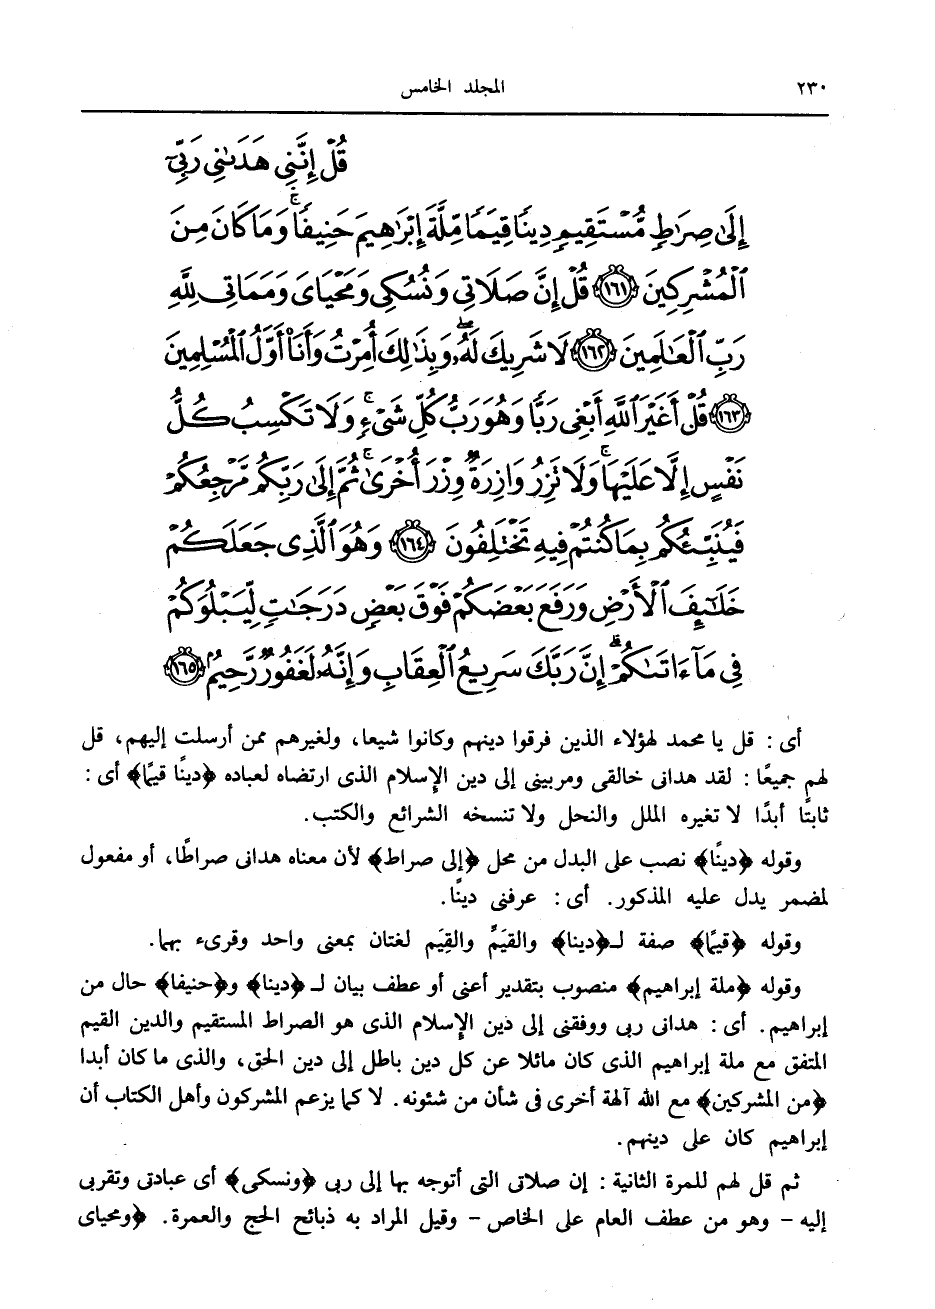 ٢٣٠ المجلد الخامس
قُلْ إِنَّنِى هَدَىٰنِى رَبِّىٓ
إِلَىٰ صِرَٰطٍ مُّسْتَقِيمٍ دِينًا قِيَمًا مِّلَّةَ إِبْرَٰهِيمَ حَنِيفًا ۚ وَمَا كَانَ مِنَ
ٱلْمُشْرِكِينَ ﴿١٦١﴾ قُلْ إِنَّ صَلَاتِى وَنُسُكِى وَمَحْيَاىَ وَمَمَاتِى لِلَّهِ
رَبِّ ٱلْعَٰلَمِينَ ﴿١٦٢﴾ لَا شَرِيكَ لَهُۥ ۖ وَبِذَٰلِكَ أُمِرْتُ وَأَنَا۠ أَوَّلُ ٱلْمُسْلِمِينَ
﴿١٦٣﴾ قُلْ أَغَيْرَ ٱللَّهِ أَبْغِى رَبًّا وَهُوَ رَبُّ كُلِّ شَىْءٍ ۚ وَلَا تَكْسِبُ كُلُّ
نَفْسٍ إِلَّا عَلَيْهَا ۚ وَلَا تَزِرُ وَازِرَةٌ وِزْرَ أُخْرَىٰ ۚ ثُمَّ إِلَىٰ رَبِّكُم مَّرْجِعُكُمْ
فَيُنَبِّئُكُم بِمَا كُنتُمْ فِيهِ تَخْتَلِفُونَ ﴿١٦٤﴾ وَهُوَ ٱلَّذِى جَعَلَكُمْ
خَلَٰٓئِفَ ٱلْأَرْضِ وَرَفَعَ بَعْضَكُمْ فَوْقَ بَعْضٍ دَرَجَٰتٍ لِّيَبْلُوَكُمْ
فِى مَآ ءَاتَىٰكُمْ ۗ إِنَّ رَبَّكَ سَرِيعُ ٱلْعِقَابِ وَإِنَّهُۥ لَغَفُورٌ رَّحِيمٌ ﴿١٦٥﴾
أى : قل يا محمد لهؤلاء الذين فرقوا دينهم وكانوا شيعا، ولغيرهم ممن أرسلت إليهم، قل
لهم جميعًا : لقد هدانى خالقى ومربينى إلى دين الإسلام الذى ارتضاه لعباده ﴿دينًا قيمًا﴾ أى :
ثابتًا أبدًا لا تغيره الملل والنحل ولا تنسخه الشرائع والكتب.
وقوله ﴿دينًا﴾ نصب على البدل من محل ﴿إلى صراط﴾ لأن معناه هدانى صراطًا، أو مفعول
لمضمر يدل عليه المذكور. أى : عرفنى دينًا.
وقوله ﴿قيمًا﴾ صفة لـ﴿دينا﴾ والقيَمُ والقِيَم لغتان بمعنى واحد وقرىء بهما.
وقوله ﴿ملة إبراهيم﴾ منصوب بتقدير أعنى أو عطف بيان لـ ﴿دينا﴾ و﴿حنيفا﴾ حال من
إبراهيم. أى : هدانى ربى ووفقنى إلى دين الإسلام الذى هو الصراط المستقيم والدين القيم
المتفق مع ملة إبراهيم الذى كان مائلا عن كل دين باطل إلى دين الحق، والذى ما كان أبدا
﴿من المشركين﴾ مع الله آلهة أخرى فى شأن من شئونه. لا كما يزعم المشركون وأهل الكتاب أن
إبراهيم كان على دينهم.
ثم قل لهم للمرة الثانية : إن صلاتى التى أتوجه بها إلى ربى ﴿ونسكى﴾ أى عبادتى وتقربى
إليه - وهو من عطف العام على الخاص - وقيل المراد به ذبائح الحج والعمرة. ﴿ومحياى